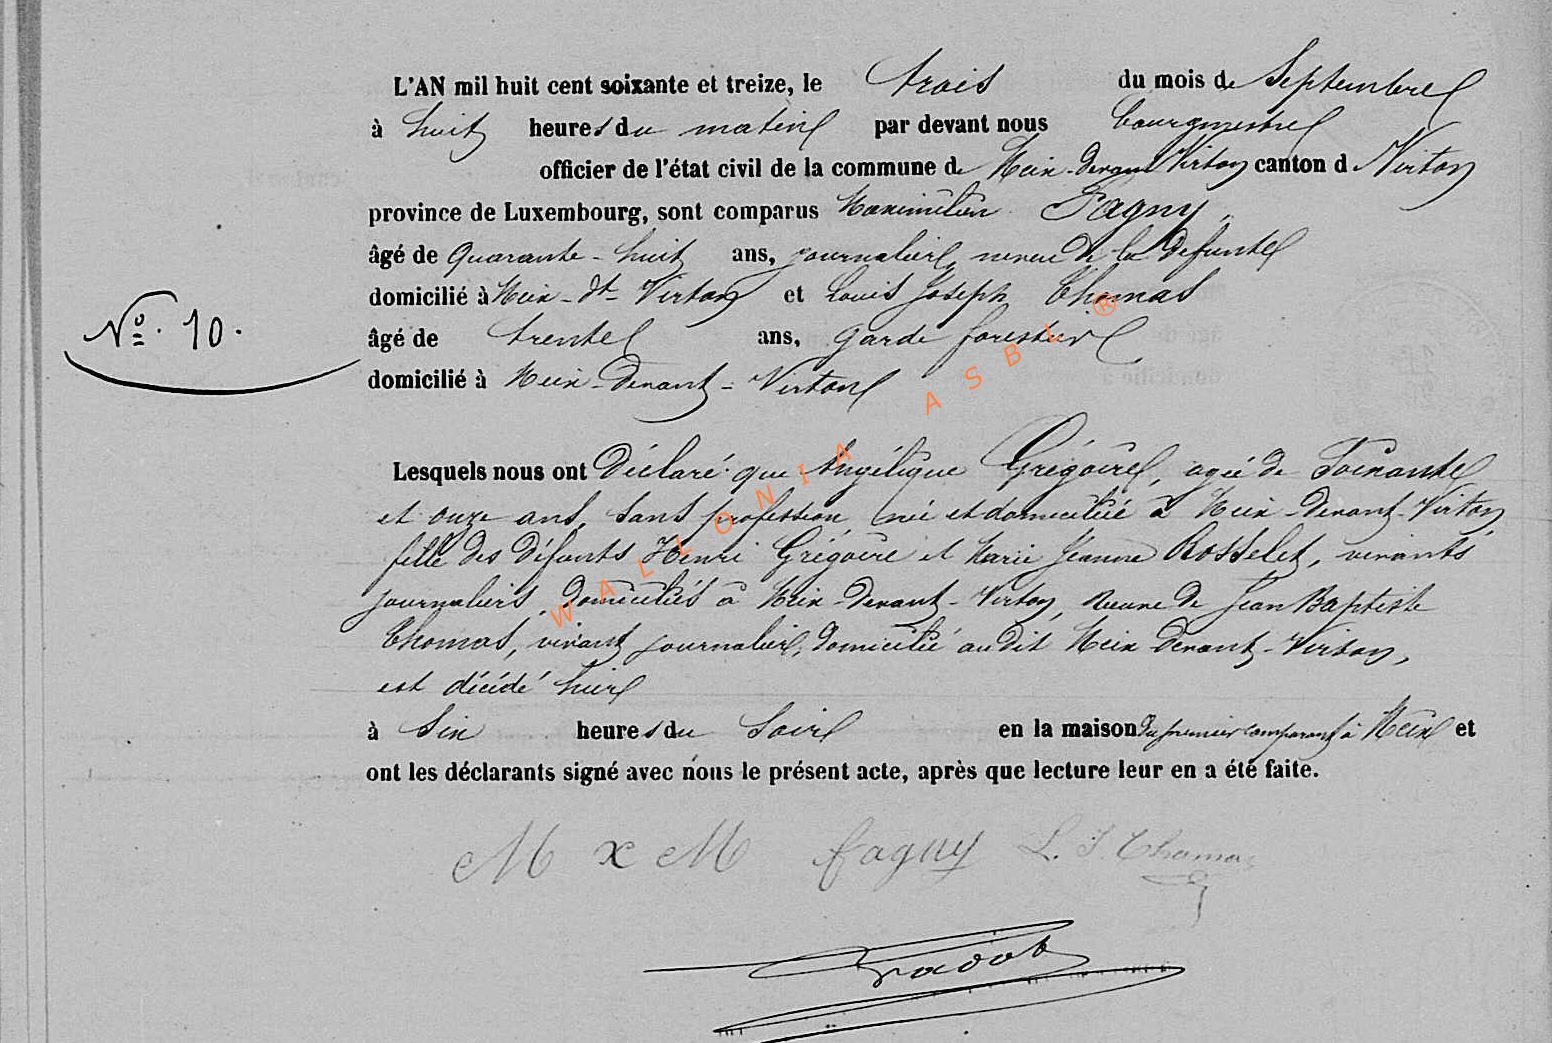 L'AN mil huit cent soixante et treize, le trois du mois de Septembre
à huit heures du matin par devant nous bourgmestre
officier de l'état civil de la commune de Meix-devant Virton canton d Virton
province de Luxembourg, sont comparus Maximilien Fagny,
âgé de Quarante-huit ans, journalier, neveu de la défunte
domicilié à Meix-dt-Virton et Louis Joseph Thomas
N° 10.
âgé de trente ans, garde forestier
domicilié à Meix-Devant-Virton
Lesquels nous ont Déclaré que Angélique Grégoire, agée de Soixante
et onze ans, sans profession, née et domiciliée à Meix-Devant-Virton
fille des défunts Henri Grégoire et Marie Jeanne Rosselet, vivants
journaliers, domiciliés à Meix-Devant-Virton, veuve de Jean Baptiste
Thomas, vivant journalier, domicilié au dit Meix Devant-Virton,
est décédé hier
à Six heures du Soir en la maison du premier comparant à Meix et
ont les déclarants signé avec nous le présent acte, après que lecture leur en a été faite.
M x M fagny L. J. Thomas
WALLONIA ASBL ®